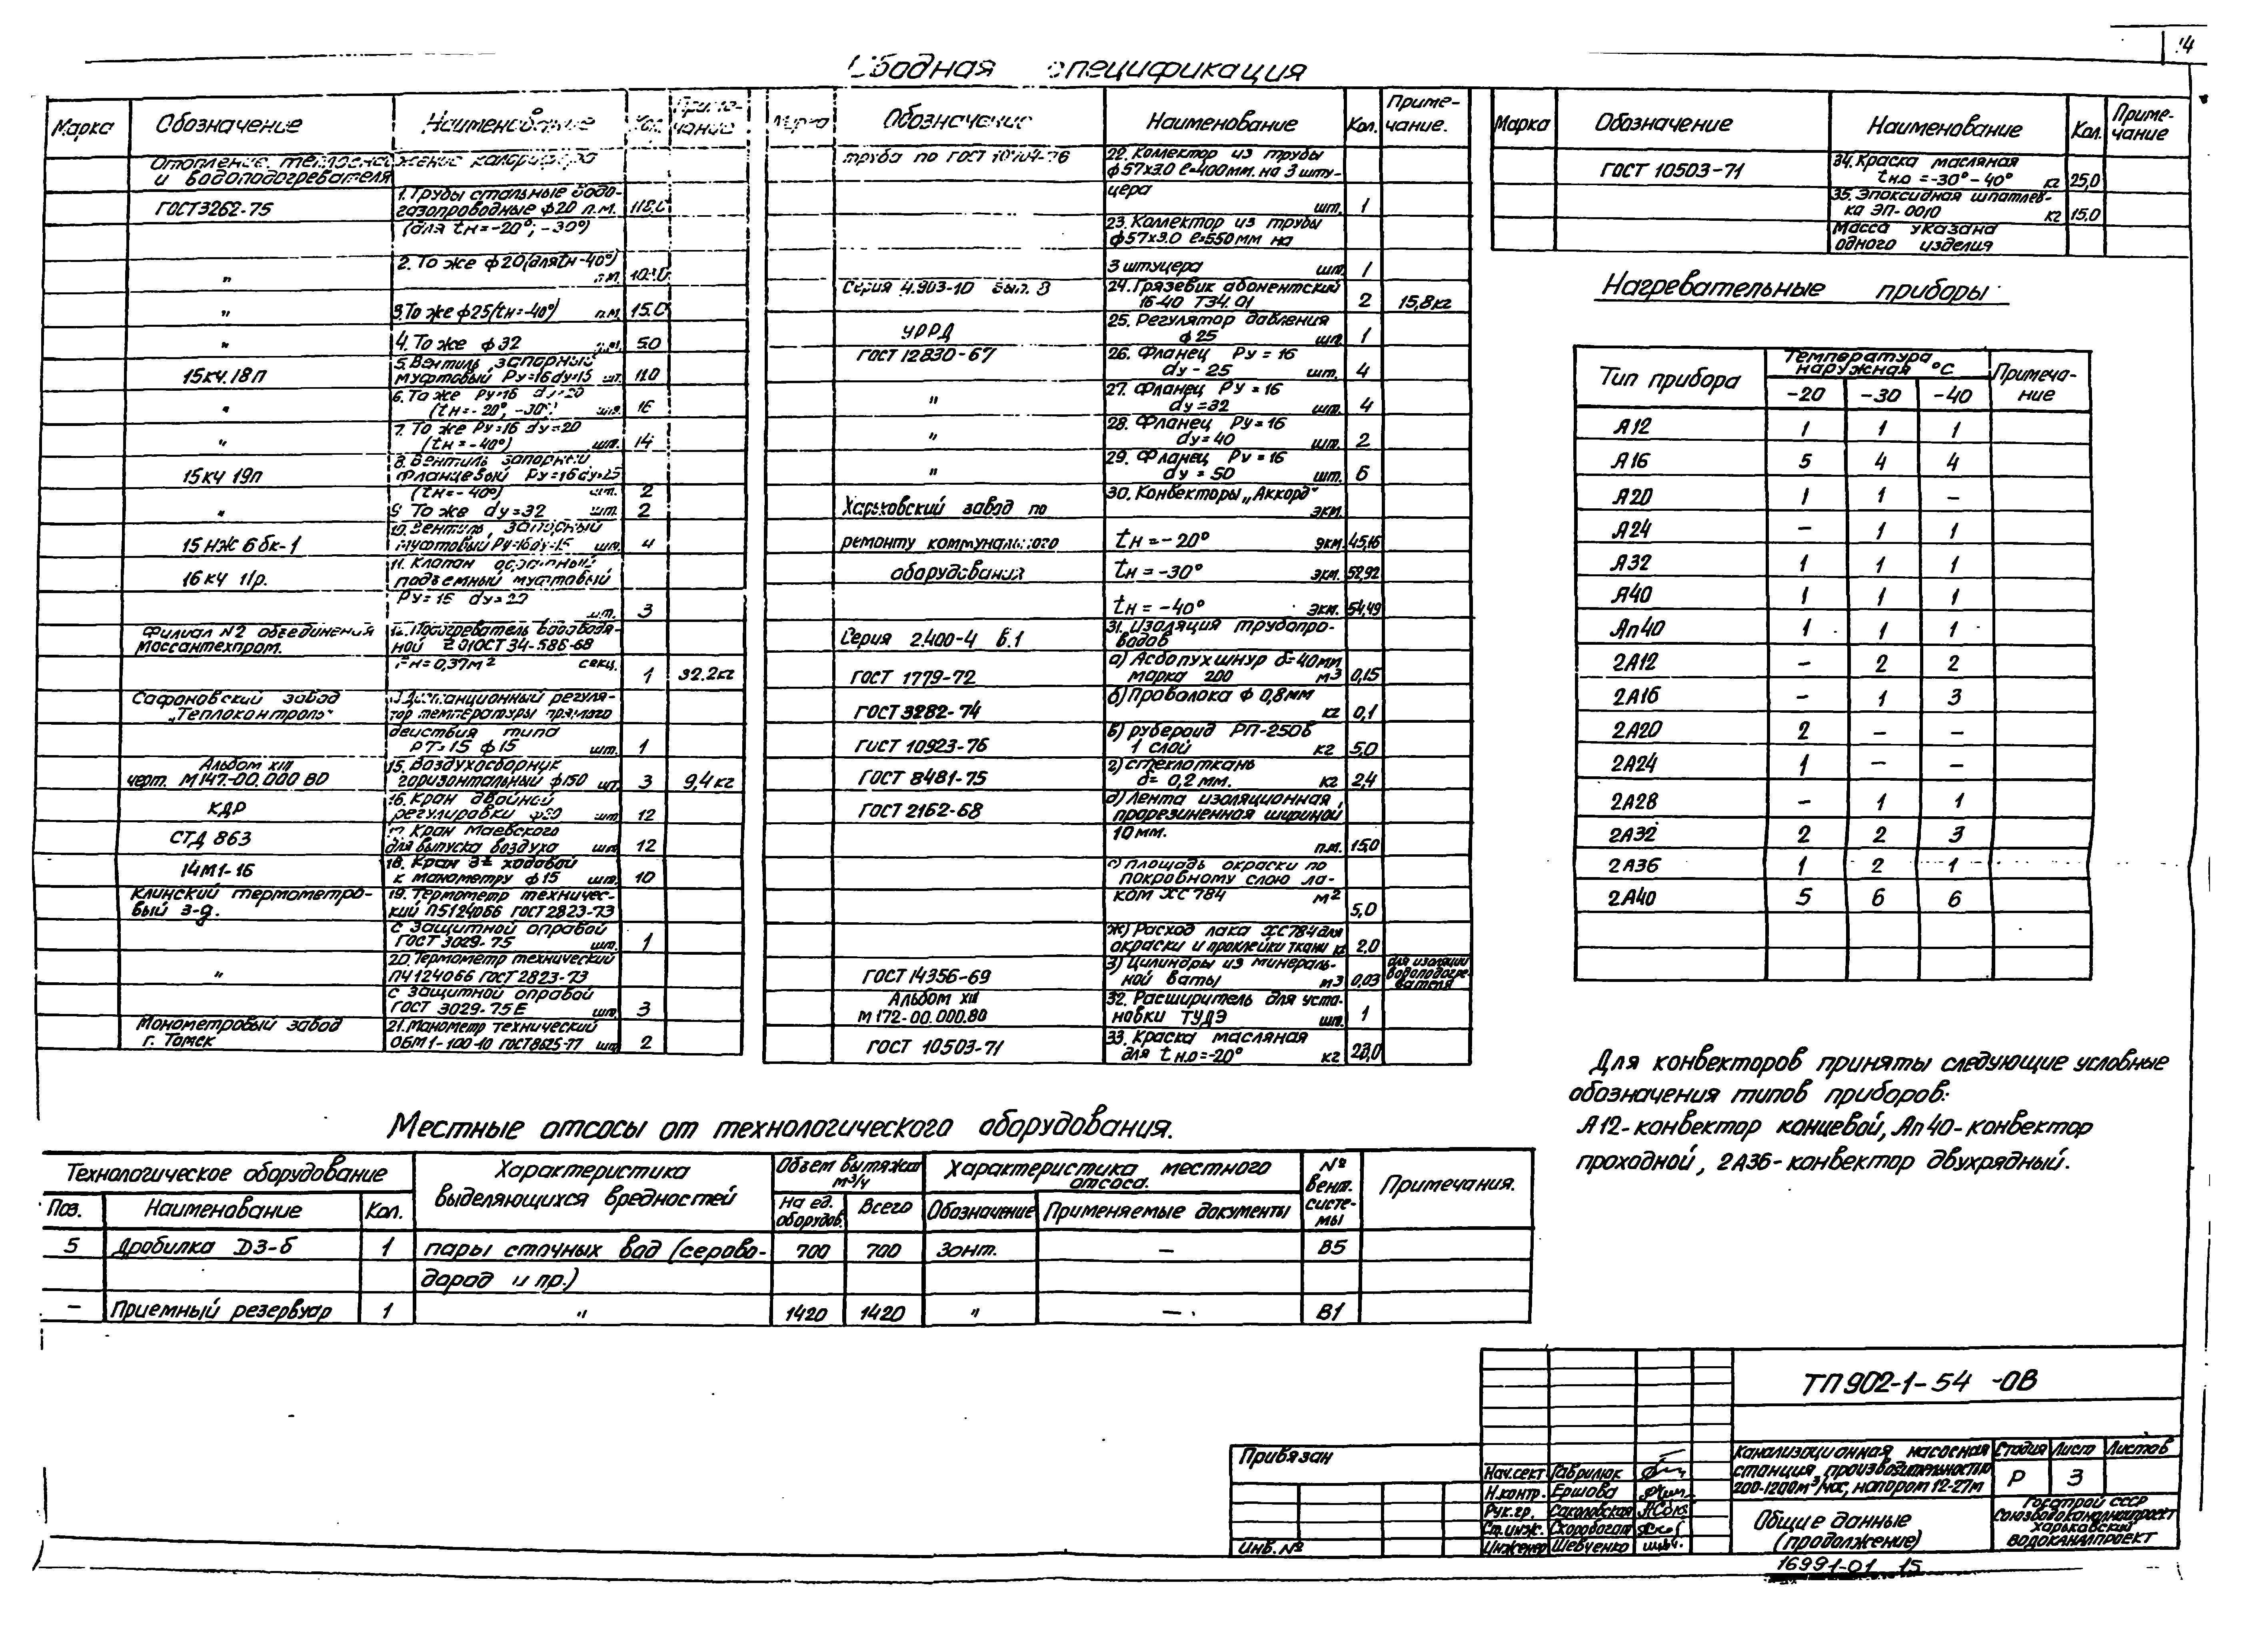 14
Сводная спецификация
Марка Обозначение Наименование Кол. Приме-
чание
Отопление, теплоснабжение калорифера
и водоподогревателя
ГОСТ 3262-75 1. Трубы стальные водо-
газопроводные ф20 п.м. 118.0
(для tн=-20°; -30°)
" 2. То же ф20(для tн-40°)
п.м.
" 3. То же ф25(tн=-40°) п.м. 15.0
" 4. То же ф32 п.м. 5.0
15кч.18п 5. Вентиль запорный
муфтовый Ру=16 dу=15 шт. 11.0
" 6. То же Ру=16 dу=20
(tн=-20°, -30°) шт. 16
" 7. То же Ру=16 dу=20
(tн=-40°) шт. 14
15кч 19п 8. Вентиль запорный
фланцевый Ру=16 dу=25
(tн=-40°) шт. 2
" 9. То же dу=32 шт. 2
15 нж 6 бк-1 10. Вентиль запорный
муфтовый Ру=16 dу=15 шт. 4
16кч 11р. 11. Клапан обратный
подъемный муфтовый
Ру=16 dу=20
шт. 3
Филиал N2 объединения 12. Подогреватель водоводя-
Моссантехпром. ной 2 01 ОСТ 34-586-68
Fн=0,37м² секц.
1 32.2кг
Сафоновский завод Дистанционный регуля-
„Теплоконтроль" тор температуры прямого
действия типа
РТ-15 ф15 шт. 1
Альбом XIII 15. Воздухосборник
черт. М147-00.000 ВО горизонтальный ф150 шт. 3 9,4кг
КДР 16. Кран двойной
регулировки ф20 шт 12
СТД 863 17. Кран Маевского
для выпуска воздуха шт 12
14М1-16 18. Кран 3х ходовой
к манометру ф15 шт. 10
Клинский термометро- 19. Термометр техничес-
вый з-д. кий П5124066 ГОСТ 2823-73
с защитной оправой
ГОСТ 3029-75 шт. 1
" 20. Термометр технический
П4124066 ГОСТ 2823-73
с защитной оправой
ГОСТ 3029-75Е шт 3
Монометровый завод 21. Манометр технический
г. Томск ОБМ1-100-10 ГОСТ 8625-77 шт 2
Марка Обозначение Наименование Кол. Приме-
чание.
труба по ГОСТ 10704-76 22. Коллектор из трубы
ф57х3.0 ℓ=400мм. на 3 шту-
цера
шт. 1
23. Коллектор из трубы
ф57х3.0 ℓ=550мм на
3 штуцера шт. 1
Серия 4.903-10 вып. 8 24. Грязевик абонентский
16-40 Т34.01 2 15,8кг
УРРД 25. Регулятор давления
ф25 шт 1
ГОСТ 12830-67 26. Фланец Ру=16
dу-25 шт. 4
" 27. Фланец Ру=16
dу=32 шт. 4
" 28. Фланец Ру=16
dу=40 шт. 2
" 29. Фланец Ру=16
dу=50 шт. 6
Харьковский завод по 30. Конвекторы „Аккорд"
экм.
ремонту коммунального tн=-20° экм 45,16
оборудования tн=-30° экм. 52,92
tн=-40° экм. 54,49
Серия 2.400-4 в.1 31. Изоляция трубопро-
водов
ГОСТ 1779-72 а) Асбопухшнур δ=40мм
марка 200 м3 0,15
ГОСТ 3282-74 б) Проволока ф 0,8мм
кг 0,1
ГОСТ 10923-76 в) рубероид РП-250б
1 слой кг 5,0
ГОСТ 8481-75 г) стеклоткань
δ= 0,2 мм. кг 2,4
ГОСТ 2162-68 д) Лента изоляционная,
прорезиненная шириной
10мм.
п.м. 15,0
е) площадь окраски по
покровному слою ла-
ком ХС 784 м2
5,0
ж) Расход лака ХС784 для
окраски и проклейки ткани кг 2.0
ГОСТ 14356-69 з) Цилиндры из минераль- для изоляции
ной ваты м3 0,03 водоподогре-
вателя
Альбом XIII 32. Расширитель для уста-
М 172-00.000.80 новки ТУДЭ шт. 1
ГОСТ 10503-71 33. Краска масляная
для tн.о=-20° кг 23,0
Марка Обозначение Наименование Кол. Приме-
чание
ГОСТ 10503-71 34. Краска масляная
tн.о =-30°-40° кг 25,0
35. Эпоксидная шпатлев-
ка ЭП-0010 кг 15.0
Масса указана
одного изделия
Нагревательные приборы
Тип прибора Температура наружная °С Примеча-
ние
-20 -30 -40
А12 1 1 1
А16 5 4 4
А20 1 1 –
А24 – 1 1
А32 1 1 1
А40 1 1 1
Ап40 1 1 1
2А12 – 2 2
2А16 – 1 3
2А20 2 – –
2А24 1 – –
2А28 – 1 1
2А32 2 2 3
2А36 1 2 1
2А40 5 6 6
Для конвекторов приняты следующие условные
обозначения типов приборов:
А12-конвектор концевой, Ап40-конвектор
проходной, 2А36-конвектор двухрядный.
Местные отсосы от технологического оборудования.
Технологическое оборудование Характеристика
выделяющихся вредностей Объем вытяжки
м³/ч Характеристика местного
отсоса. № вент. систе-
мы Примечания.
Поз. Наименование Кол. На ед.
оборудов. Всего Обозначение Применяемые документы
5 Дробилка Д3-б 1 пары сточных вод (серово- 700 700 Зонт. – В5
дород и пр.)
– Приемный резервуар 1 " 1420 1420 " – В1
ТП 902-1-54 -ОВ
Привязан
Инв. №
Нач.сект. Гаврилюк
Н.контр. Ершова
Рук.гр. Соколовская
Ст.инж. Скоробогат
Инженер Шевченко
Канализационная насосная
станция, производительностью
200-1200м³/час, напором 12-27м
Стадия Лист Листов
Р 3
Общие данные
(продолжение)
Госстрой СССР
Союзводоканалниипроект
Харьковский
ВОДОКАНАЛПРОЕКТ
16991-01 15